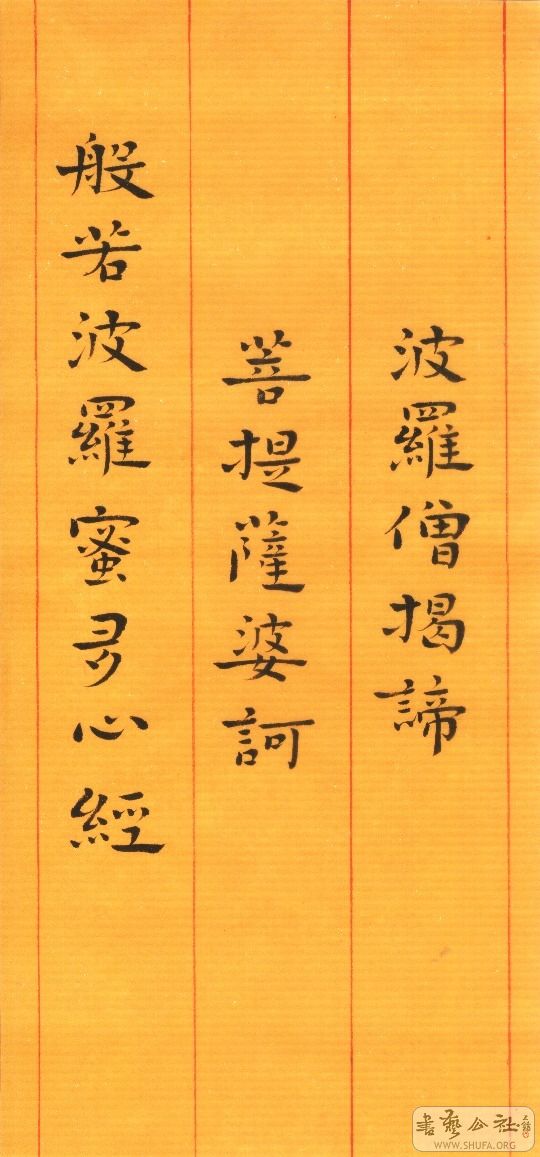 波羅僧揭諦
菩提薩婆訶
般若波羅蜜多心經
書藝公社
WWW.SHUFA.ORG